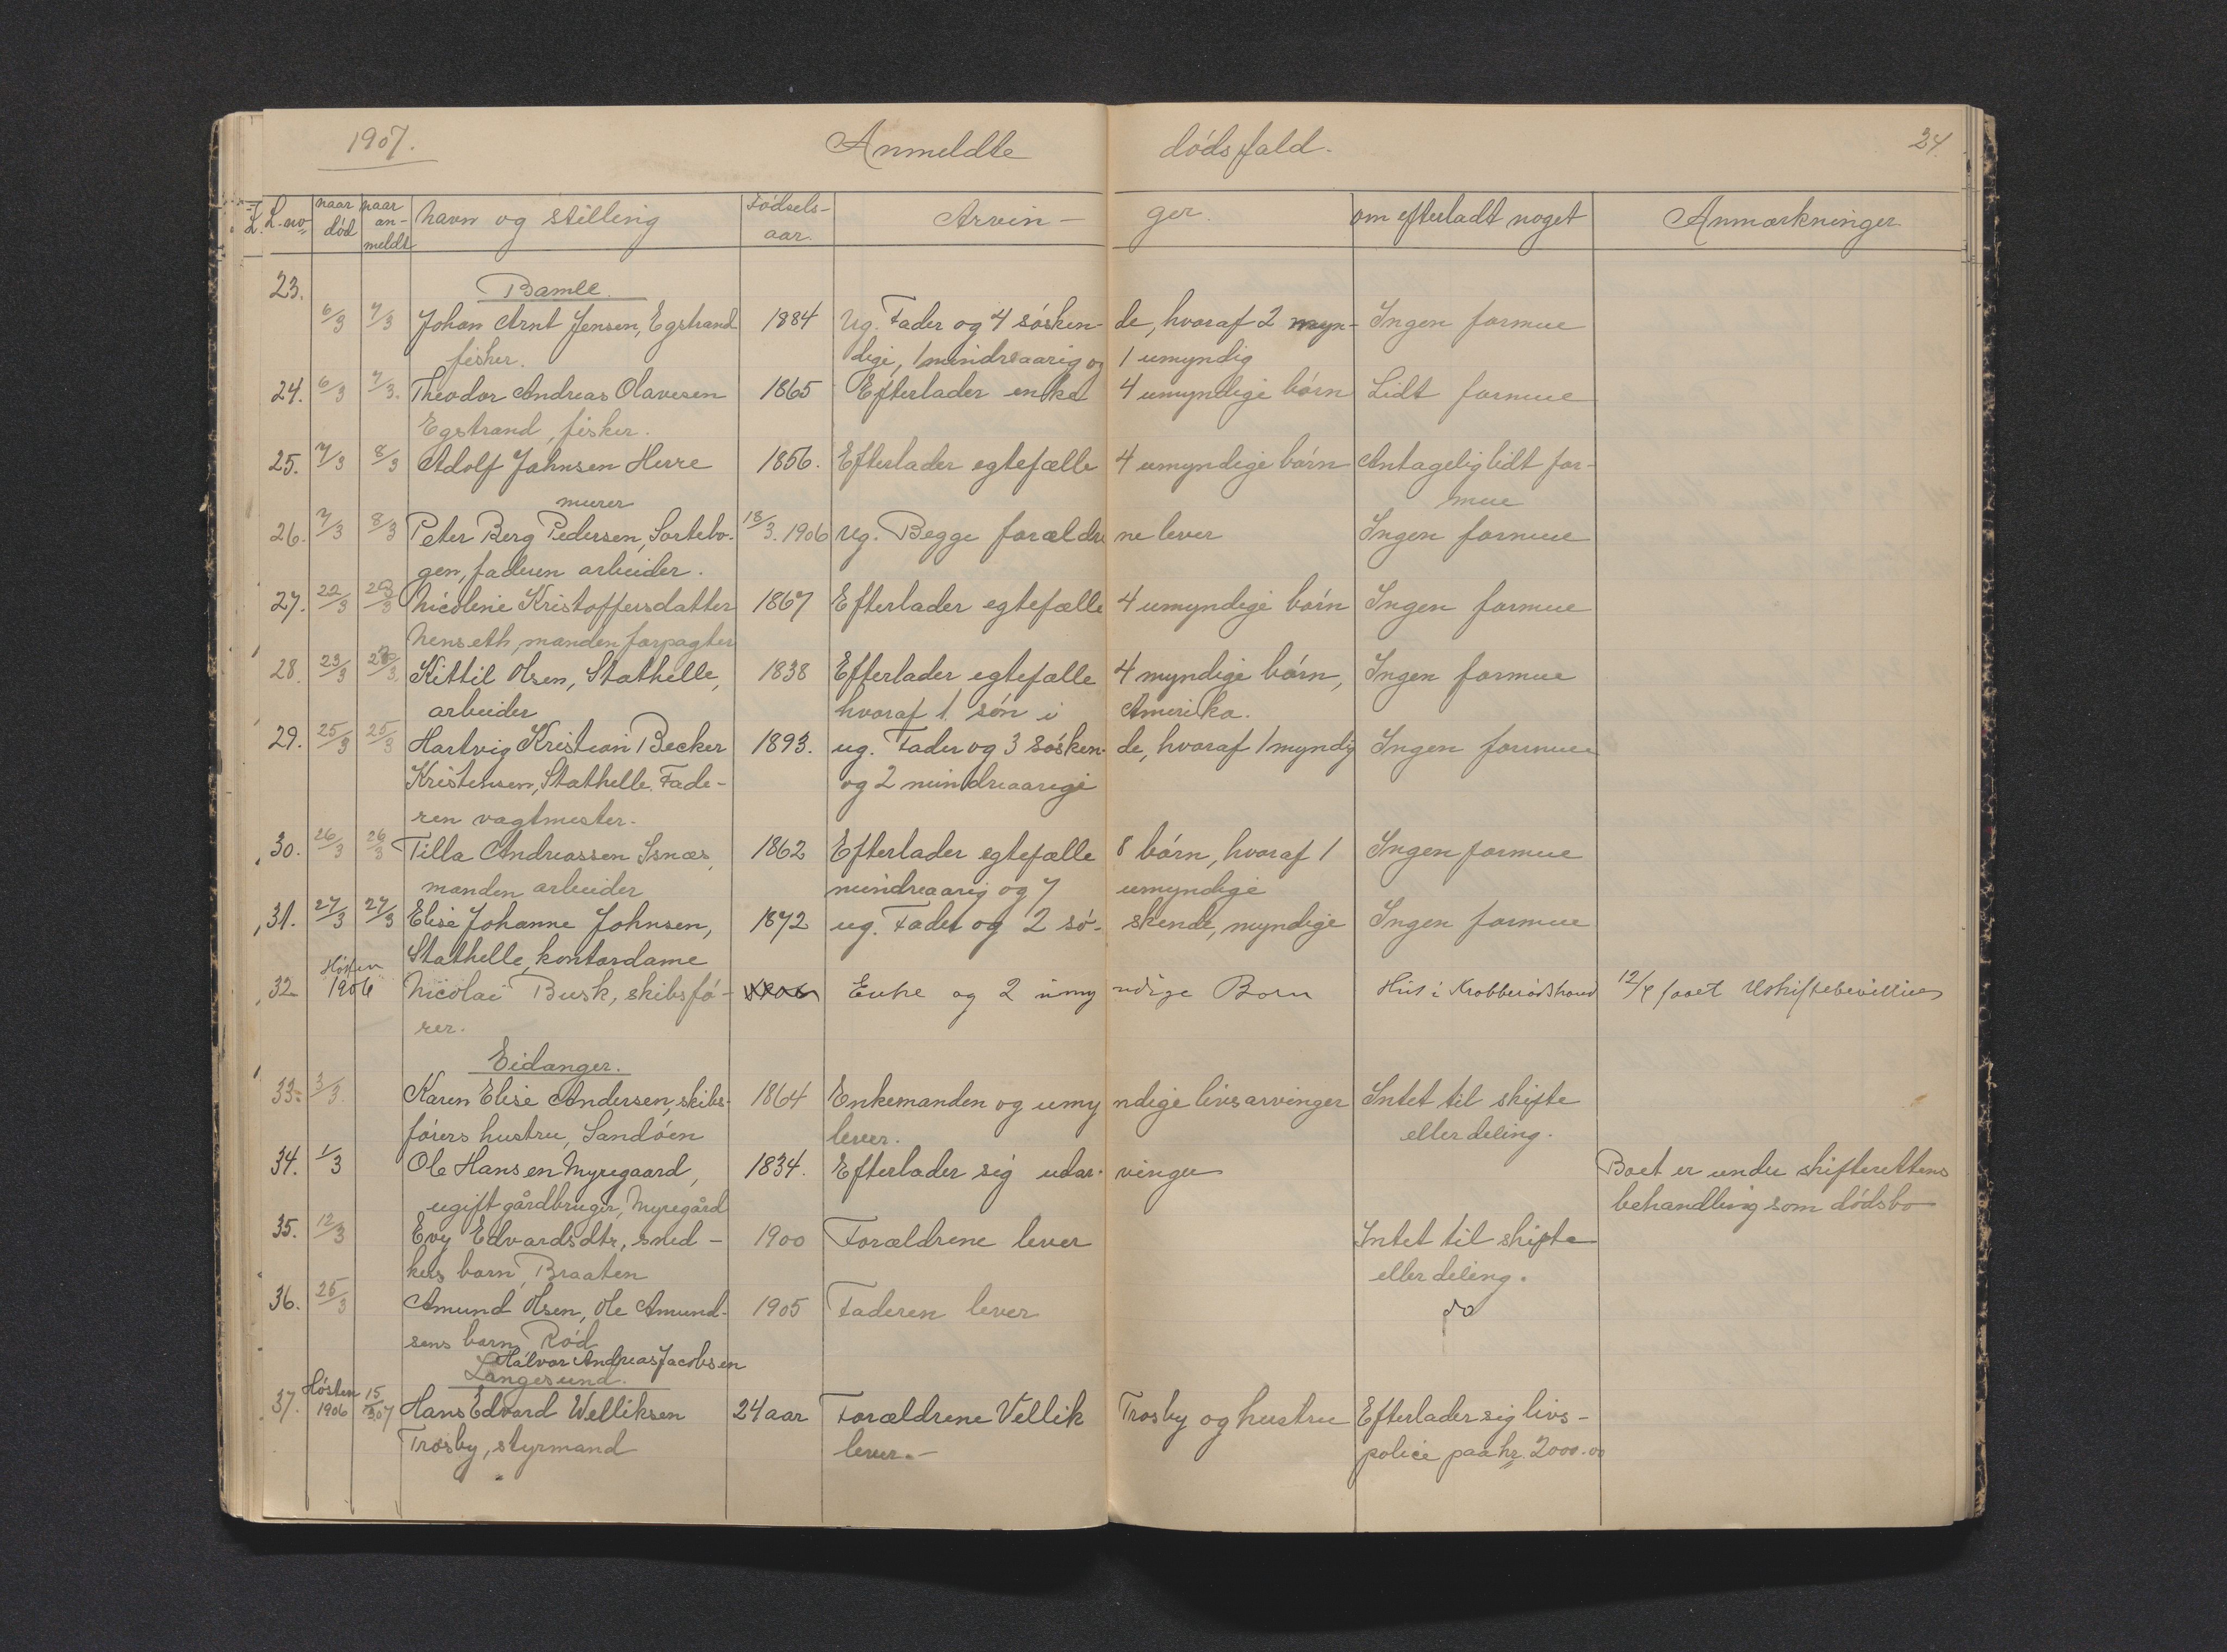 1907. Anmeldte dödsfald. 24.
L. L.no naar död naar an- meldt navn og stilling Födsels- aar. Arvin- ger. om efterladt noget Anmærkninger
23. Bamle.
6/3 7/3 Johan Arnt Jensen, Egstrand 1884 Ug. Fader og 4 sösken- de, hvoraf 2 myn- Ingen formue
fisker. dige, 1 mindreaarig og 1 umyndig
24. 6/3 7/3. Theodor Andreas Olavesen 1865 Efterlader enke 4 umyndige börn Lidt formue
Egstrand, fisker.
25. 7/3 8/3 Adolf Johnsen Herre 1856. Efterlader egtefælle 4 umyndige börn Antagelig lidt for-
murer mue
26. 7/3 8/3 Peter Berg Pedersen, Sortebo- 18/3. 1906 Ug. Begge forældre ne lever Ingen formue
gen, faderen arbeider.
27. 22/3 23/3 Nicoline Kristoffersdatter 1867 Efterlader egtefælle 4 umyndige börn Ingen formue
Nenseth, manden forpagter
28. 23/3 23/3. Kittil Olsen, Stathelle, 1838 Efterlader egtefælle 4 myndige börn, Ingen formue
arbeider hvoraf 1 sön i Amerika.
29. 25/3 25/3 Hartvig Kristian Becker 1893. ug. Fader og 3 sösken- de, hvoraf 1 myndig Ingen formue
Kristensen, Stathelle. Fade- og 2 mindreaarige
ren vagtmester.
30. 26/3 26/3 Tilla Andreassen Isnæs, 1862 Efterlader egtefælle 8 börn, hvoraf 1 Ingen formue
manden arbeider mindreaarig og 7 umyndige
31. 27/3 27/3 Elise Johanne Johnsen, 1872 ug. Fader og 2 sö- skende, myndige Ingen formue
Stathelle, kontordame
32 Hösten 1906 Nicolai Busk, skibsfö- Enke og 2 umy ndige Born Hus i 12/4 faaet Uskiftebevilling
rer.
Eidanger.
33. 3/3. Karen Elise Andersen, skibs- 1864 Enkemanden og umy ndige livsarvinger Intet til skifte
förers hustru, Sandöen lever. eller deling.
34. 1/3 Ole Hansen Myregaard, 1834. Efterlader sig udar- vinger Boet er under skifterettens
ugift gårdbruger, Myregård behandling som dödsbo
35. 12/3 Evy Edvardsdtr, sned- 1900 Forældrene lever Intet til skifte
kers barn, Braaten eller deling.
36. 25/3 Amund Olsen, Ole Amund- 1905 Faderen lever do
sens barn, Röd
Halvor Andreas Jacobsen
Langesund.
37. Hösten 1906 15/3 07 Hans Edvard Welliksen 24 aar Forældrene Vellik Trosby og hustru Efterlader sig livs-
Trosby, styrmand lever.- police paa kr. 2000.00